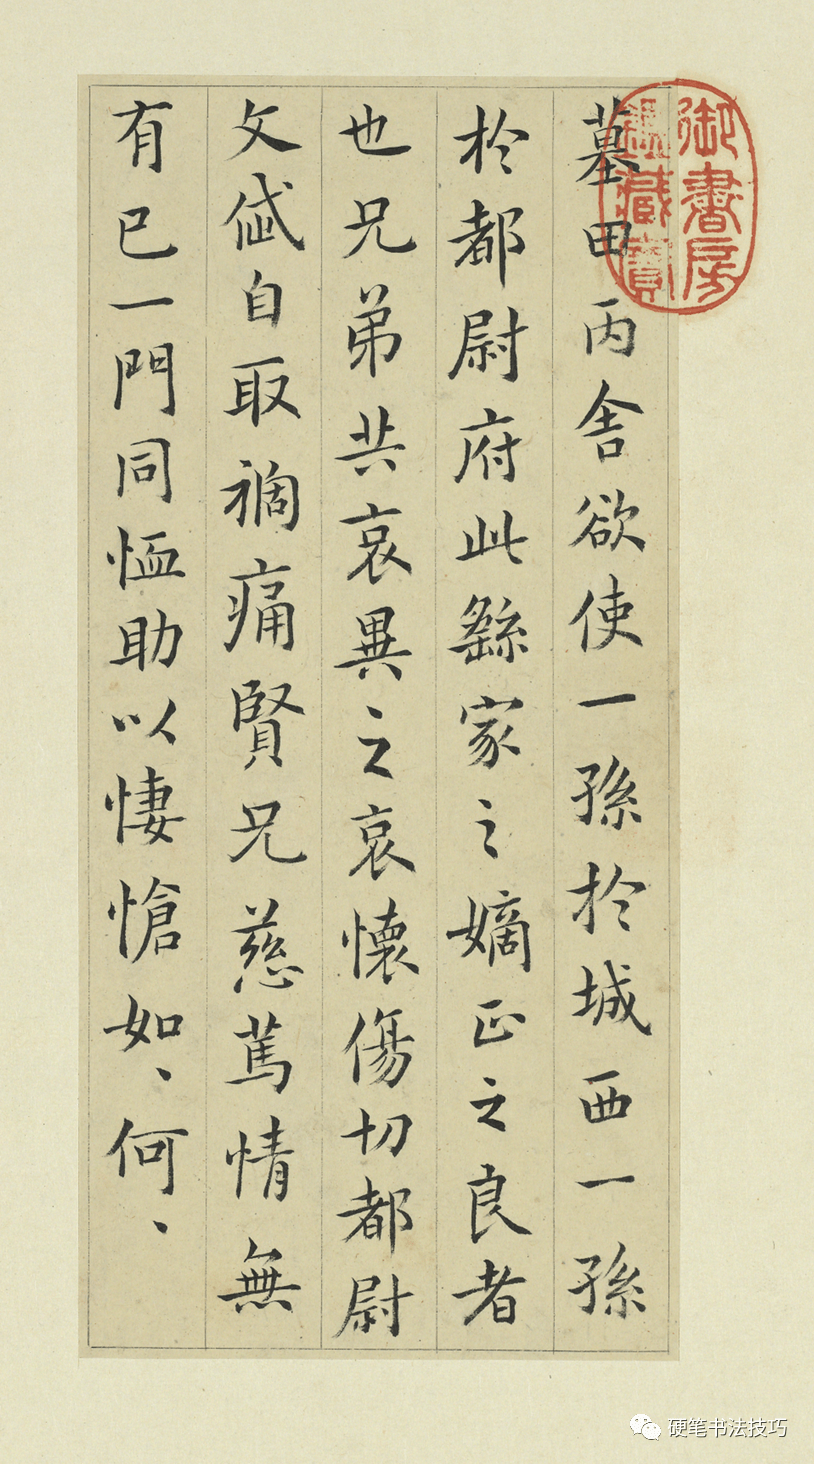 墓田丙舍欲使一孫於城西一孫
於都尉府此繇家之嫡正之良者
也兄弟共哀異之哀懷傷切都尉
文岱自取禍痛賢兄慈篤情無
有已一門同恤助以悽愴如、何、
御書房
鑑藏寶
硬笔书法技巧